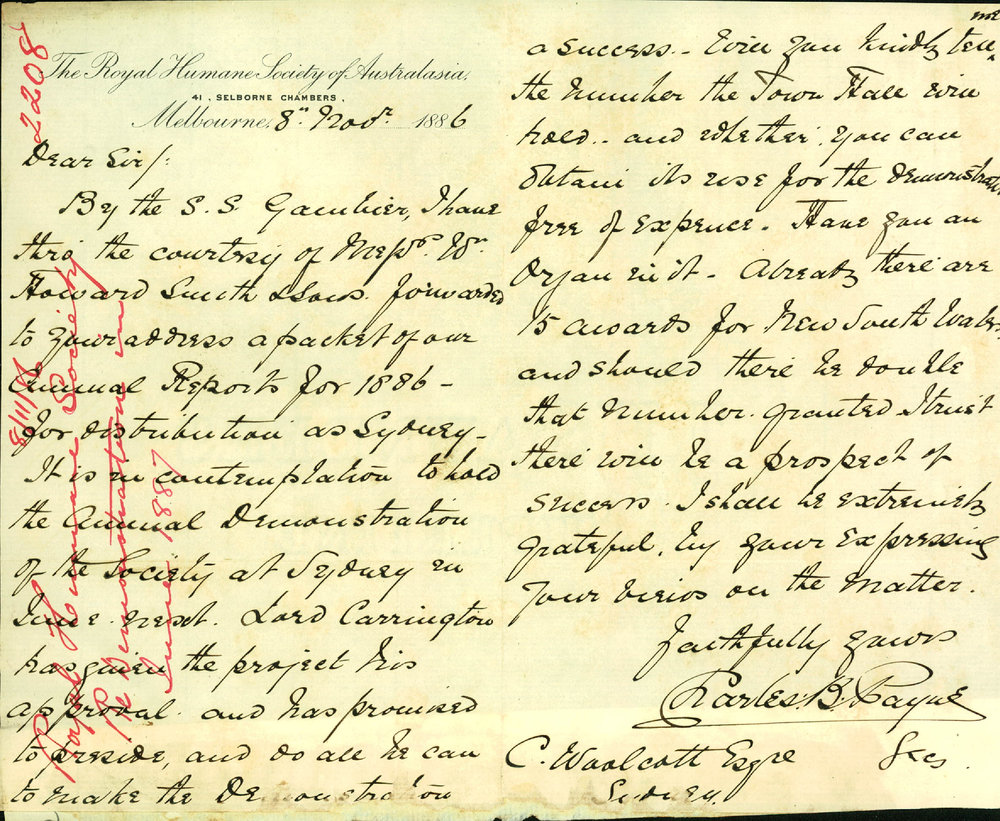 The Royal Humane Society of Australasia,
41, SELBORNE CHAMBERS,
Melbourne, 8th Novr. 1886
Dear Sir/:
By the S.S. Gambier, I have
thro the courtesy of Messrs. Wm.
Howard Smith & Sons. forwarded
to your address a packet of our
Annual Reports for 1886 -
for distribution as Sydney -
It is in contemplation to hold
the Annual Demonstration
of the Society at Sydney in
June next. Lord Carrington
has given the project his
approval. and has promised
to preside, and do all he can
to make the Demonstration
a success. - Will you kindly tell me
the number the Town Hall will
hold.. and whether you can
obtain its use for the demonstration
free of expence. Have you an
Organ in it - Already there are
15 awards for New South Wales
and should there be double
that number granted I trust
there will be a prospect of
success. I shall be extremely
grateful, by your expressing
your views on the matter.
Faithfully yours
Charles. B. Payne
Secy.
C. Woolcott Esqre
Sydney.
2208
8/11/86
Royal Humane Society
Re Demonstration in
June 1887